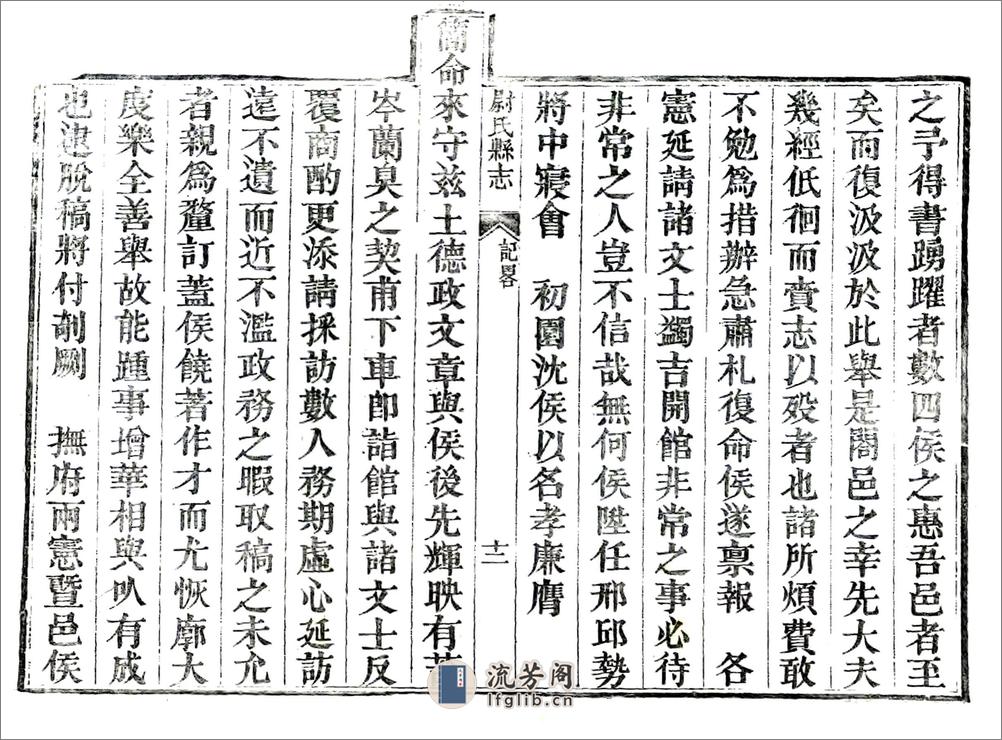 之予得書踴躍者數四侯之惠吾邑者至
矣而復汲汲於此舉是閤邑之幸先大夫
幾經低徊而賫志以殁者也諸所煩費敢
不勉爲措辦急肅札復命侯遂禀報 各
憲延請諸文士蠲吉開館非常之事必待
非常之人豈不信哉無何侯陞任邢邱勢
將中寢會 初園沈侯以名孝廉膺
尉氏縣志 記畧 十二
簡命來守兹土德政文章與侯後先輝映有若
岑蘭臭之契甫下車卽詣館與諸文士反
覆商酌更添請採訪數人務期虛心延訪
遠不遺而近不濫政務之暇取稿之未允
者親爲釐訂蓋侯饒著作才而尤恢廓大
度樂全善舉故能踵事增華相與㕥有成
也逮脫稿將付剞劂 撫府兩憲暨邑侯
流芳阁
lfglib.cn